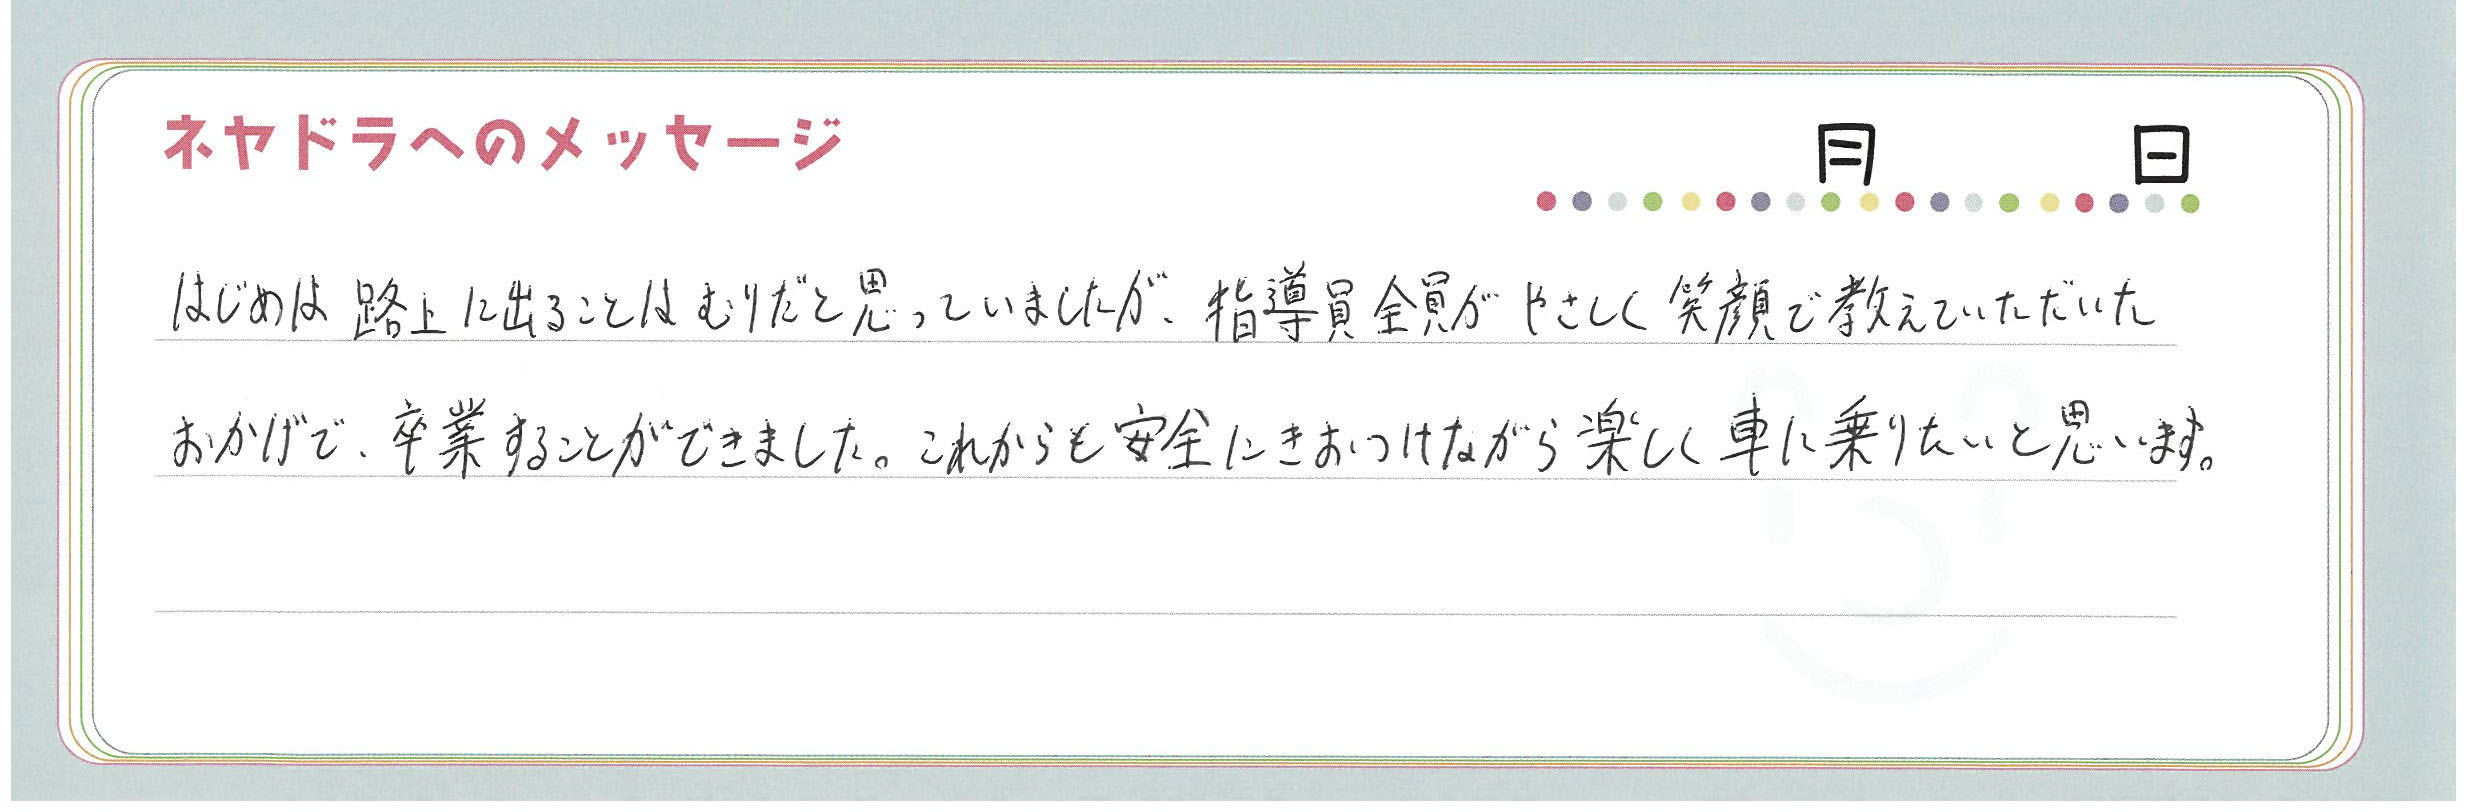 ネヤドラへのメッセージ
月 日
はじめは路上に出ることはむりだと思っていましたが、指導員全員がやさしく笑顔で教えていただいた
おかげで、卒業することができました。これからも安全にきおつけながら楽しく車に乗りたいと思います。